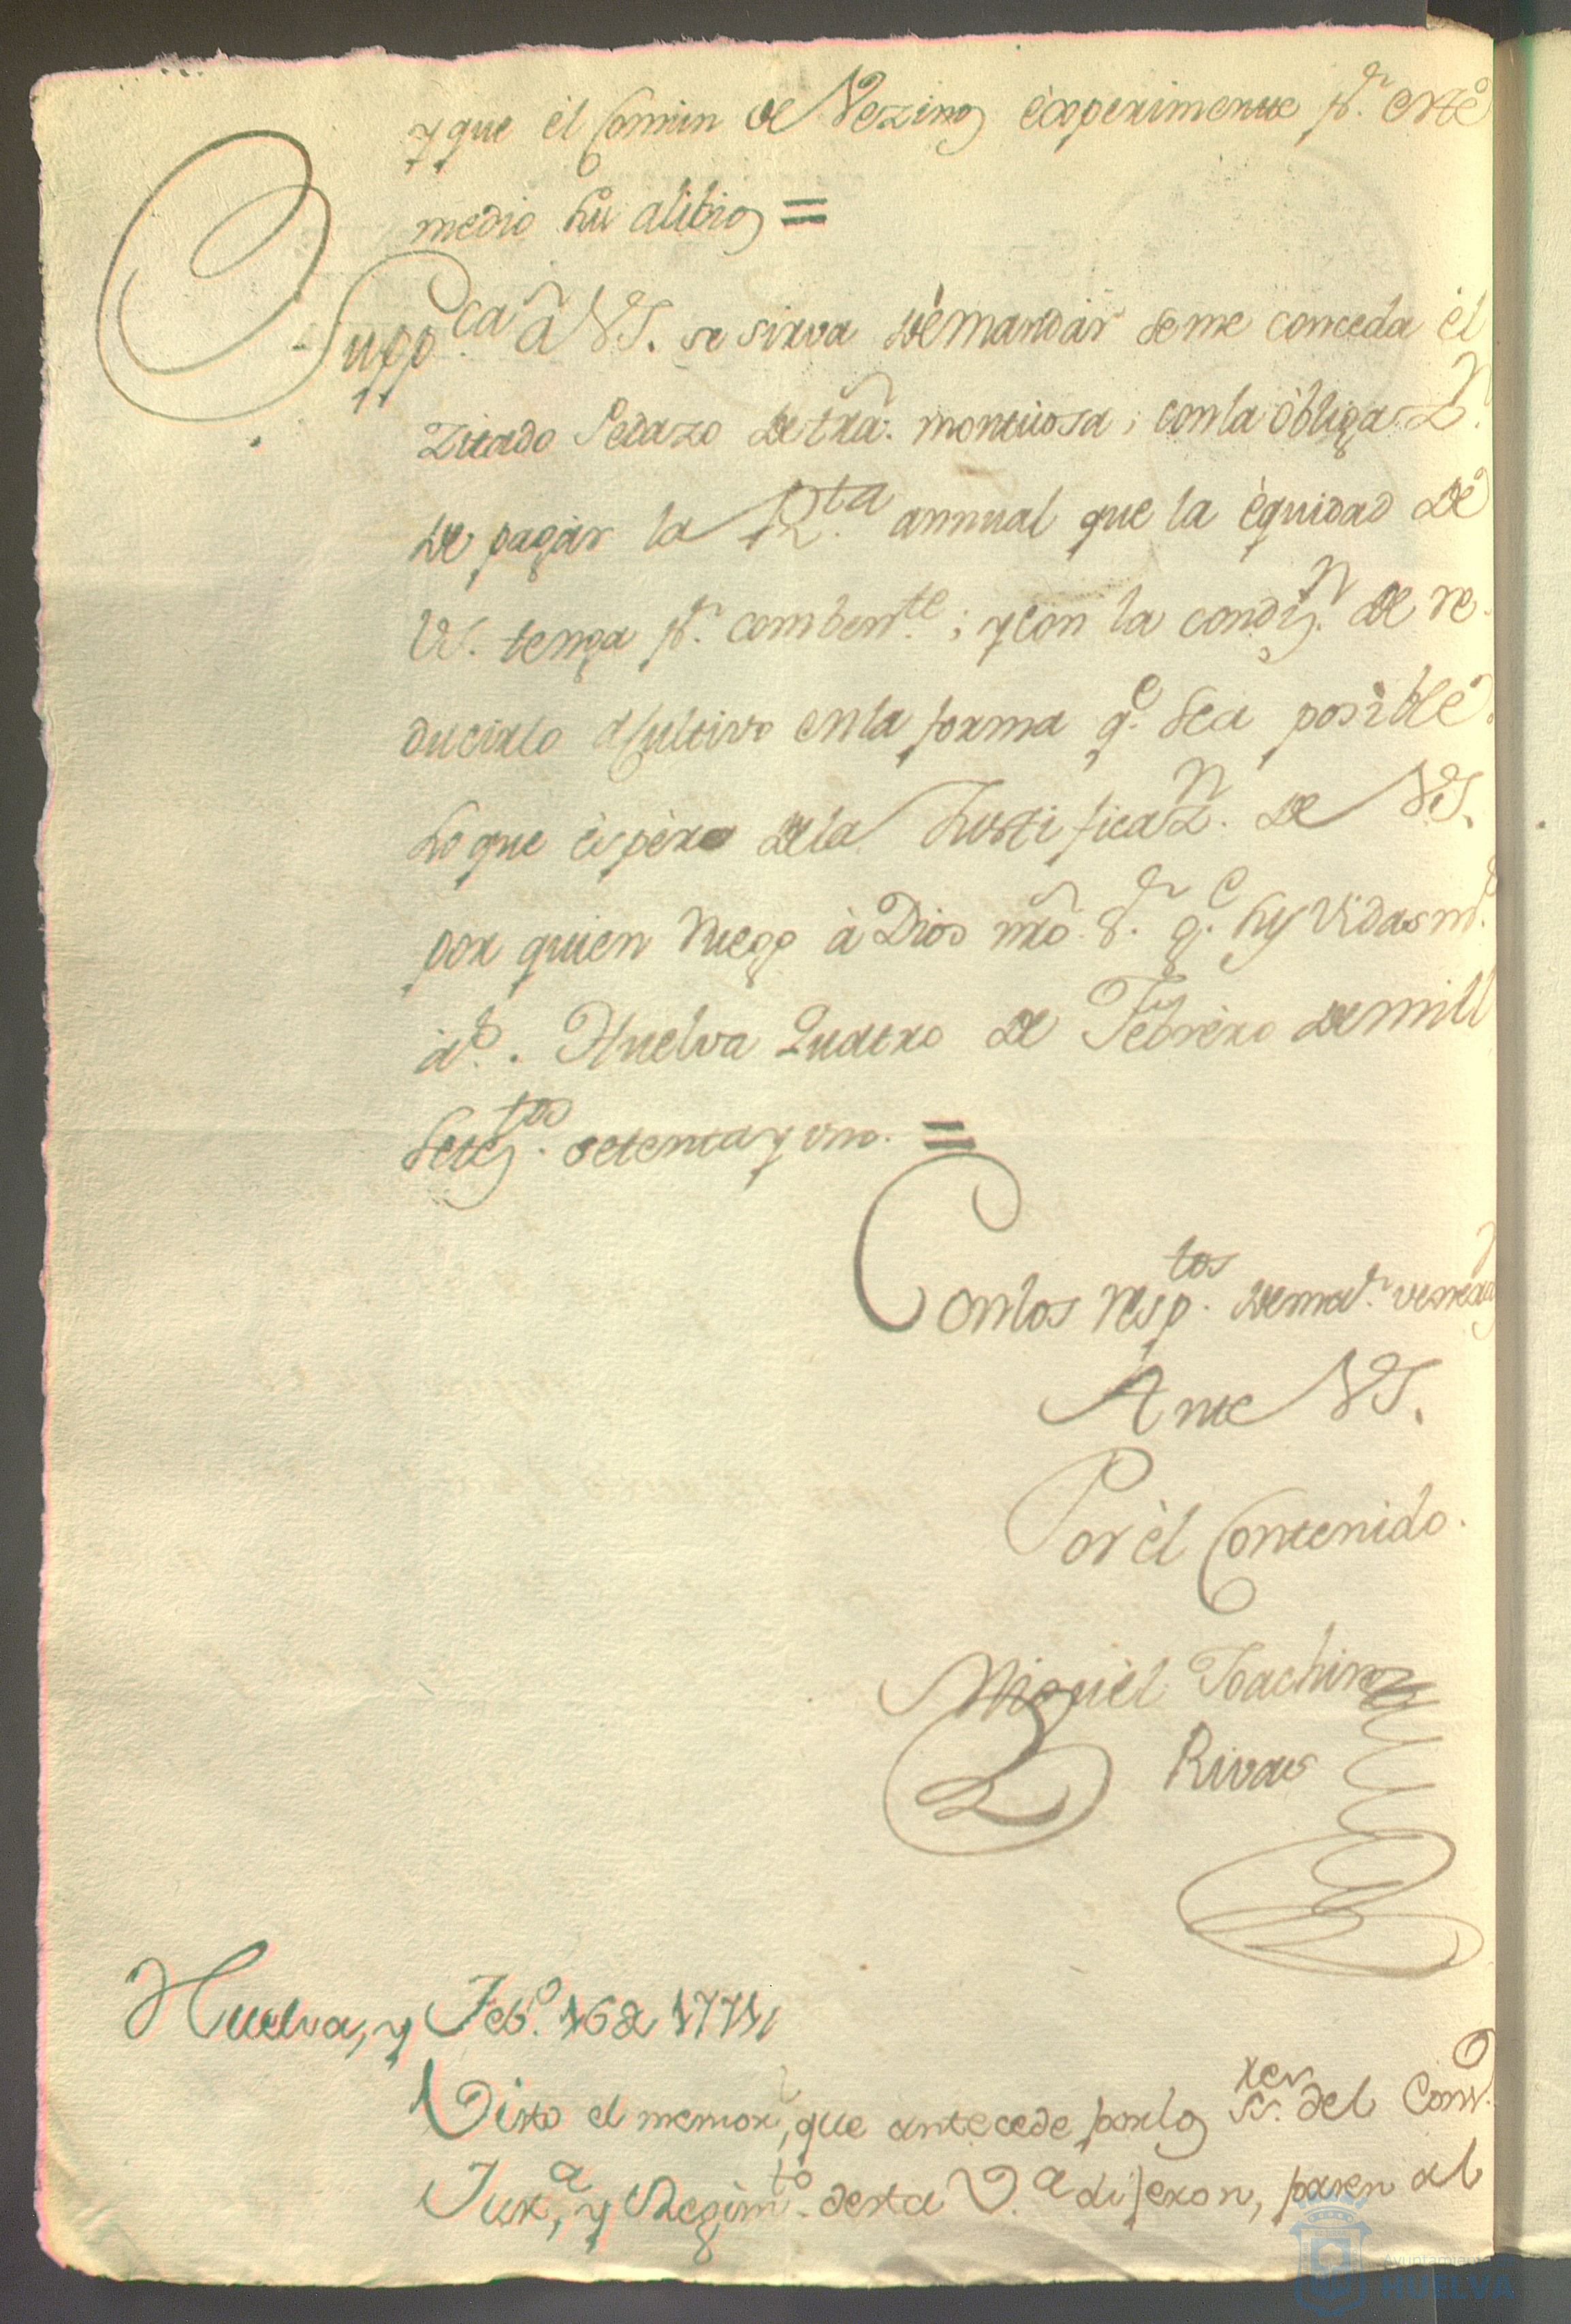 y que èl Comun de Vezinos èxperimente pr. este
medio su alibio =
Suppca. â VS. se sirva de mandàr se me conceda èl
Zitado Pedazo de trrã. montuosa; con la òbligazn.
de pagàr la Rta. annual que la èquidad de
VS. tenga pr. combente.; y con la condizn. de re-
ducirlo a Cultivo en la forma qe. sea posible.
Lo que èspèro de la Justificazn. de VS.
por quien Ruego à Dios nrõ. Sr. ge. sus Vidas ms.
às. Huelva Quatro de Febrèro de mill
Setestos. setenta y uno. =
Con los resptos. de mor. venerazn
Ante VS.
Por èl Contenido.
Miguèl Joachin
Rivas
Huelva, y Febo. 16 de 1771,
Visto el memorl, que antecede por los SSres. del Conso.
Justa, y Regimto. desta Va. dijeron, pasen al
Ayuntamiento
HUELVA